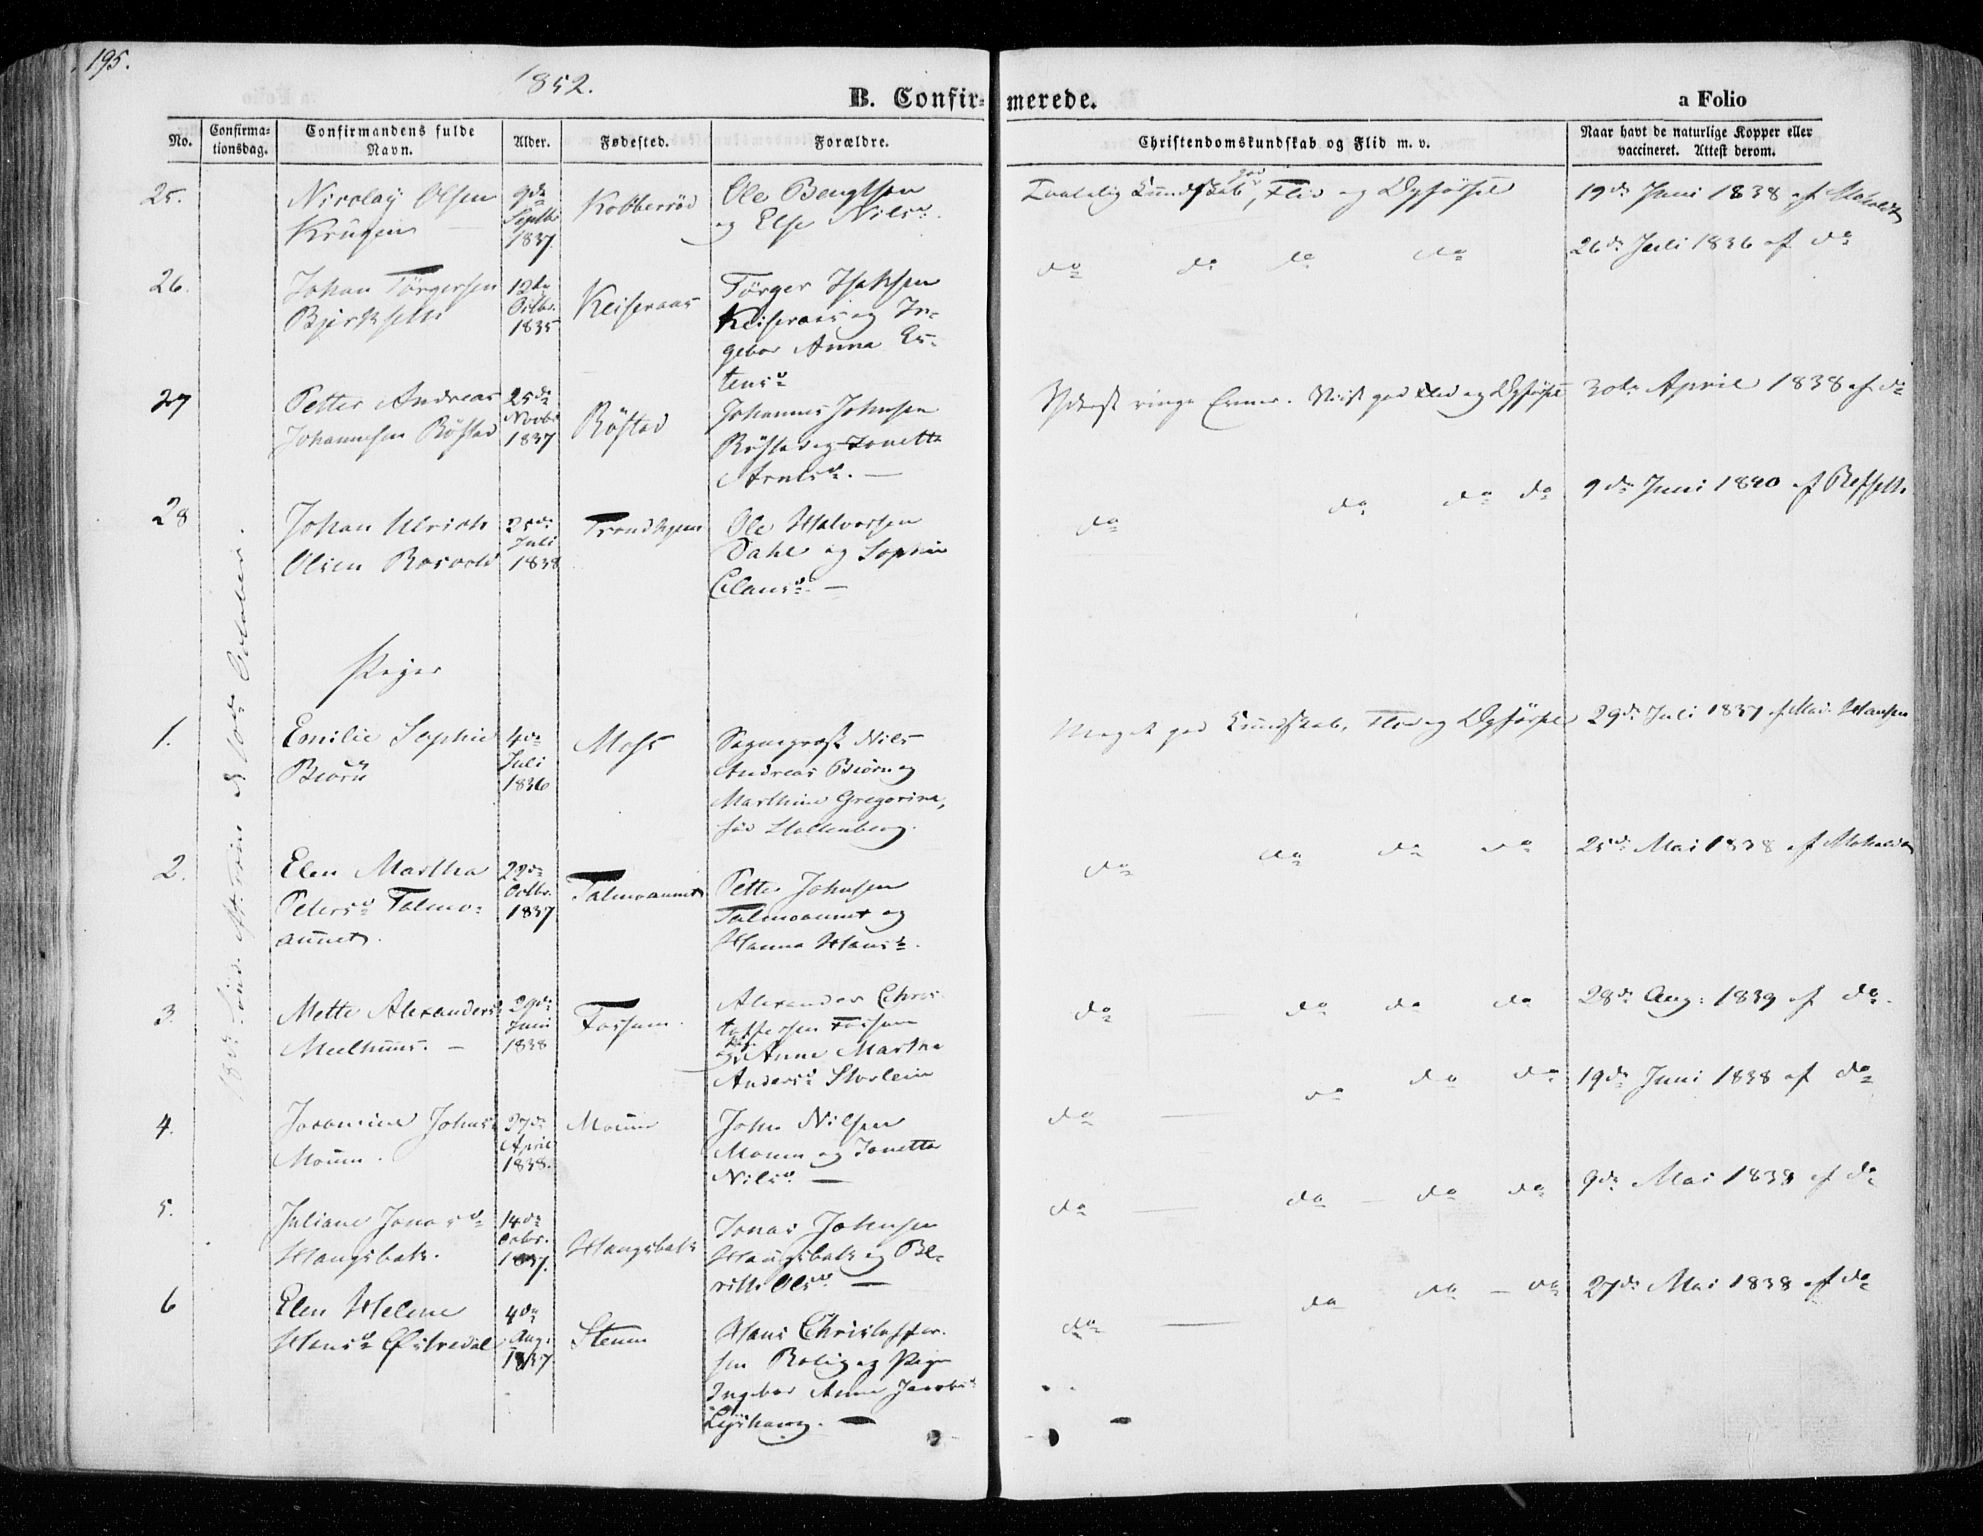 195.
1852.
B. Confirmerede.
a Folio
No.
Confirmationsdag.
Confirmandens fulde Navn.
Alder.
Fødested.
Forældre.
Christendomskundskab og Flid m. v.
Naar havt de naturlige Kopper eller vaccineret. Attest derom.
25.
Nicolay Olsen
9de
Septbr
1837
Ole Bengtsen
og Else Nilsd.
Kundskab, god Flid og Opførsel
19de Juni 1838 af
26.
Johan Törgersen
12te
Octbr.
1835
Keiseraas
Törger Isaksen
Keiseraas og In-
gebor Anna Es-
tensd
do do do do
26de Juli 1836 af do
27
Petter Andreas
Johannesen Röstad
25de
Novbr
1837
Röstad
Johannes Johnsen
Röstad og Jonetta
Arntsd. —
ringe Evner. god Flid og Opførsel
30te April 1838 af do
28
Johan Ulrich
Olsen Rosvold
25de
Juli
1838
Trondhjem
Ole Halvorsen
Dahl og Sophie
Clausd. —
do do do do
9de Juni 1840 af
Piger
10de October.
1.
Emilie Sophie
Biörn
4de
Juli
1836
Moss
Sogneprest Nils
Andreas Biörn og
Marthine Gregorine,
föd Stoltenberg.
Meget god Kundskab, Flid og Opførsel
29de Juli 1837 af Mad. Hansen
2.
Elen Martha
Petersd Talmo-
aunet.
29de
Octbr.
1837
Talmoaunet
Petter Johnsen
Talmoaunet og
Hanna Hansd.
do do do do
25de Mai 1838 af
3.
Mette Alexandersd
Meelhuus. —
29de
Juni
1838
Fossum.
Alexander Chris-
toffersen Fossum
Anne Martha
Andersd
do do do do
28de Aug: 1839 af do.
4.
Johnsd
Moum.
27de
April
1838.
Moum
John Nilsen
Moum og Jonetta
Nilsd. —
do — do do do
19de Juni 1838 af do
5.
Juliane Jonasd
Haugsbak.
14de
Octbr.
1837.
Haugsbak
Jonas Johnsen
Haugsbak og Be-
ritte Olsd. —
do — do — do do
9de Mai 1838 af do
6
Elen Helene
Hansd Østredal
4de
Aug.
1837
Steene
Hans Christoffer-
sen Rolig og Pige
Ingebor Anne Jacobsd
do — do do — do
27de Mai 1838 af do